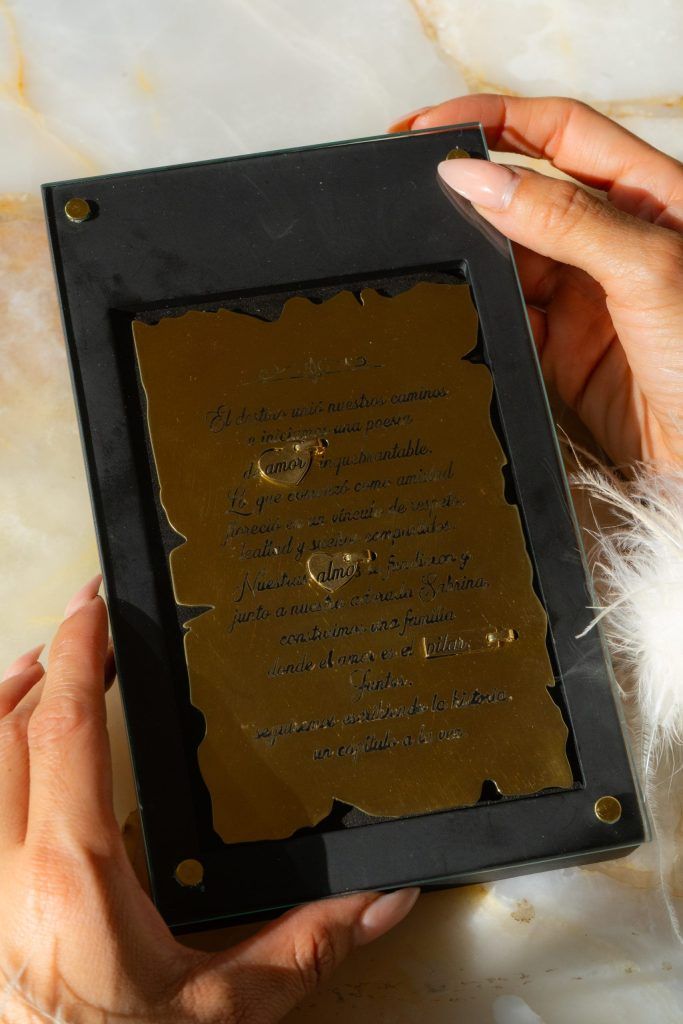 El destino unió nuestros caminos
e iniciamos una poesía
de amor inquebrantable.
Lo que comenzó como amistad
floreció en un vínculo de respeto,
lealtad y sueños compartidos.
Nuestras almas se fundieron y
junto a nuestra adorada Sabrina,
construimos una familia
donde el amor es el pilar.
Juntos,
seguiremos escribiendo la historia,
un capítulo a la vez.